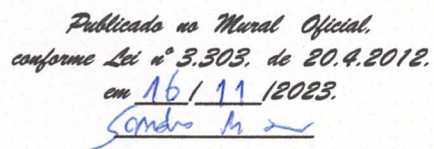 Publicado no Mural Oficial,
conforme Lei nº 3.303, de 20.4.2012.
em 16 / 11 /2023.
Sandro M